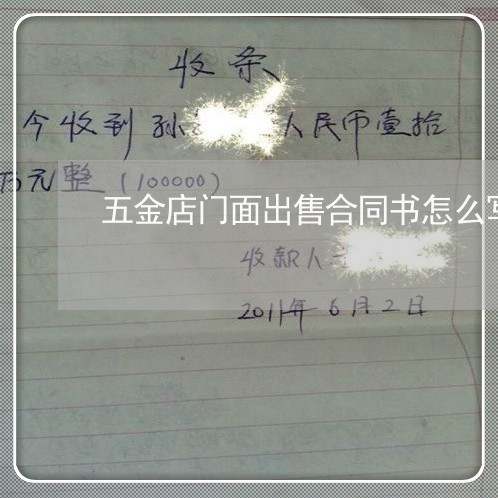 收条
今收到孙 人民币壹拾
万元整(100000)
五金店门面出售合同书怎么写
收款人
2011年6月2日